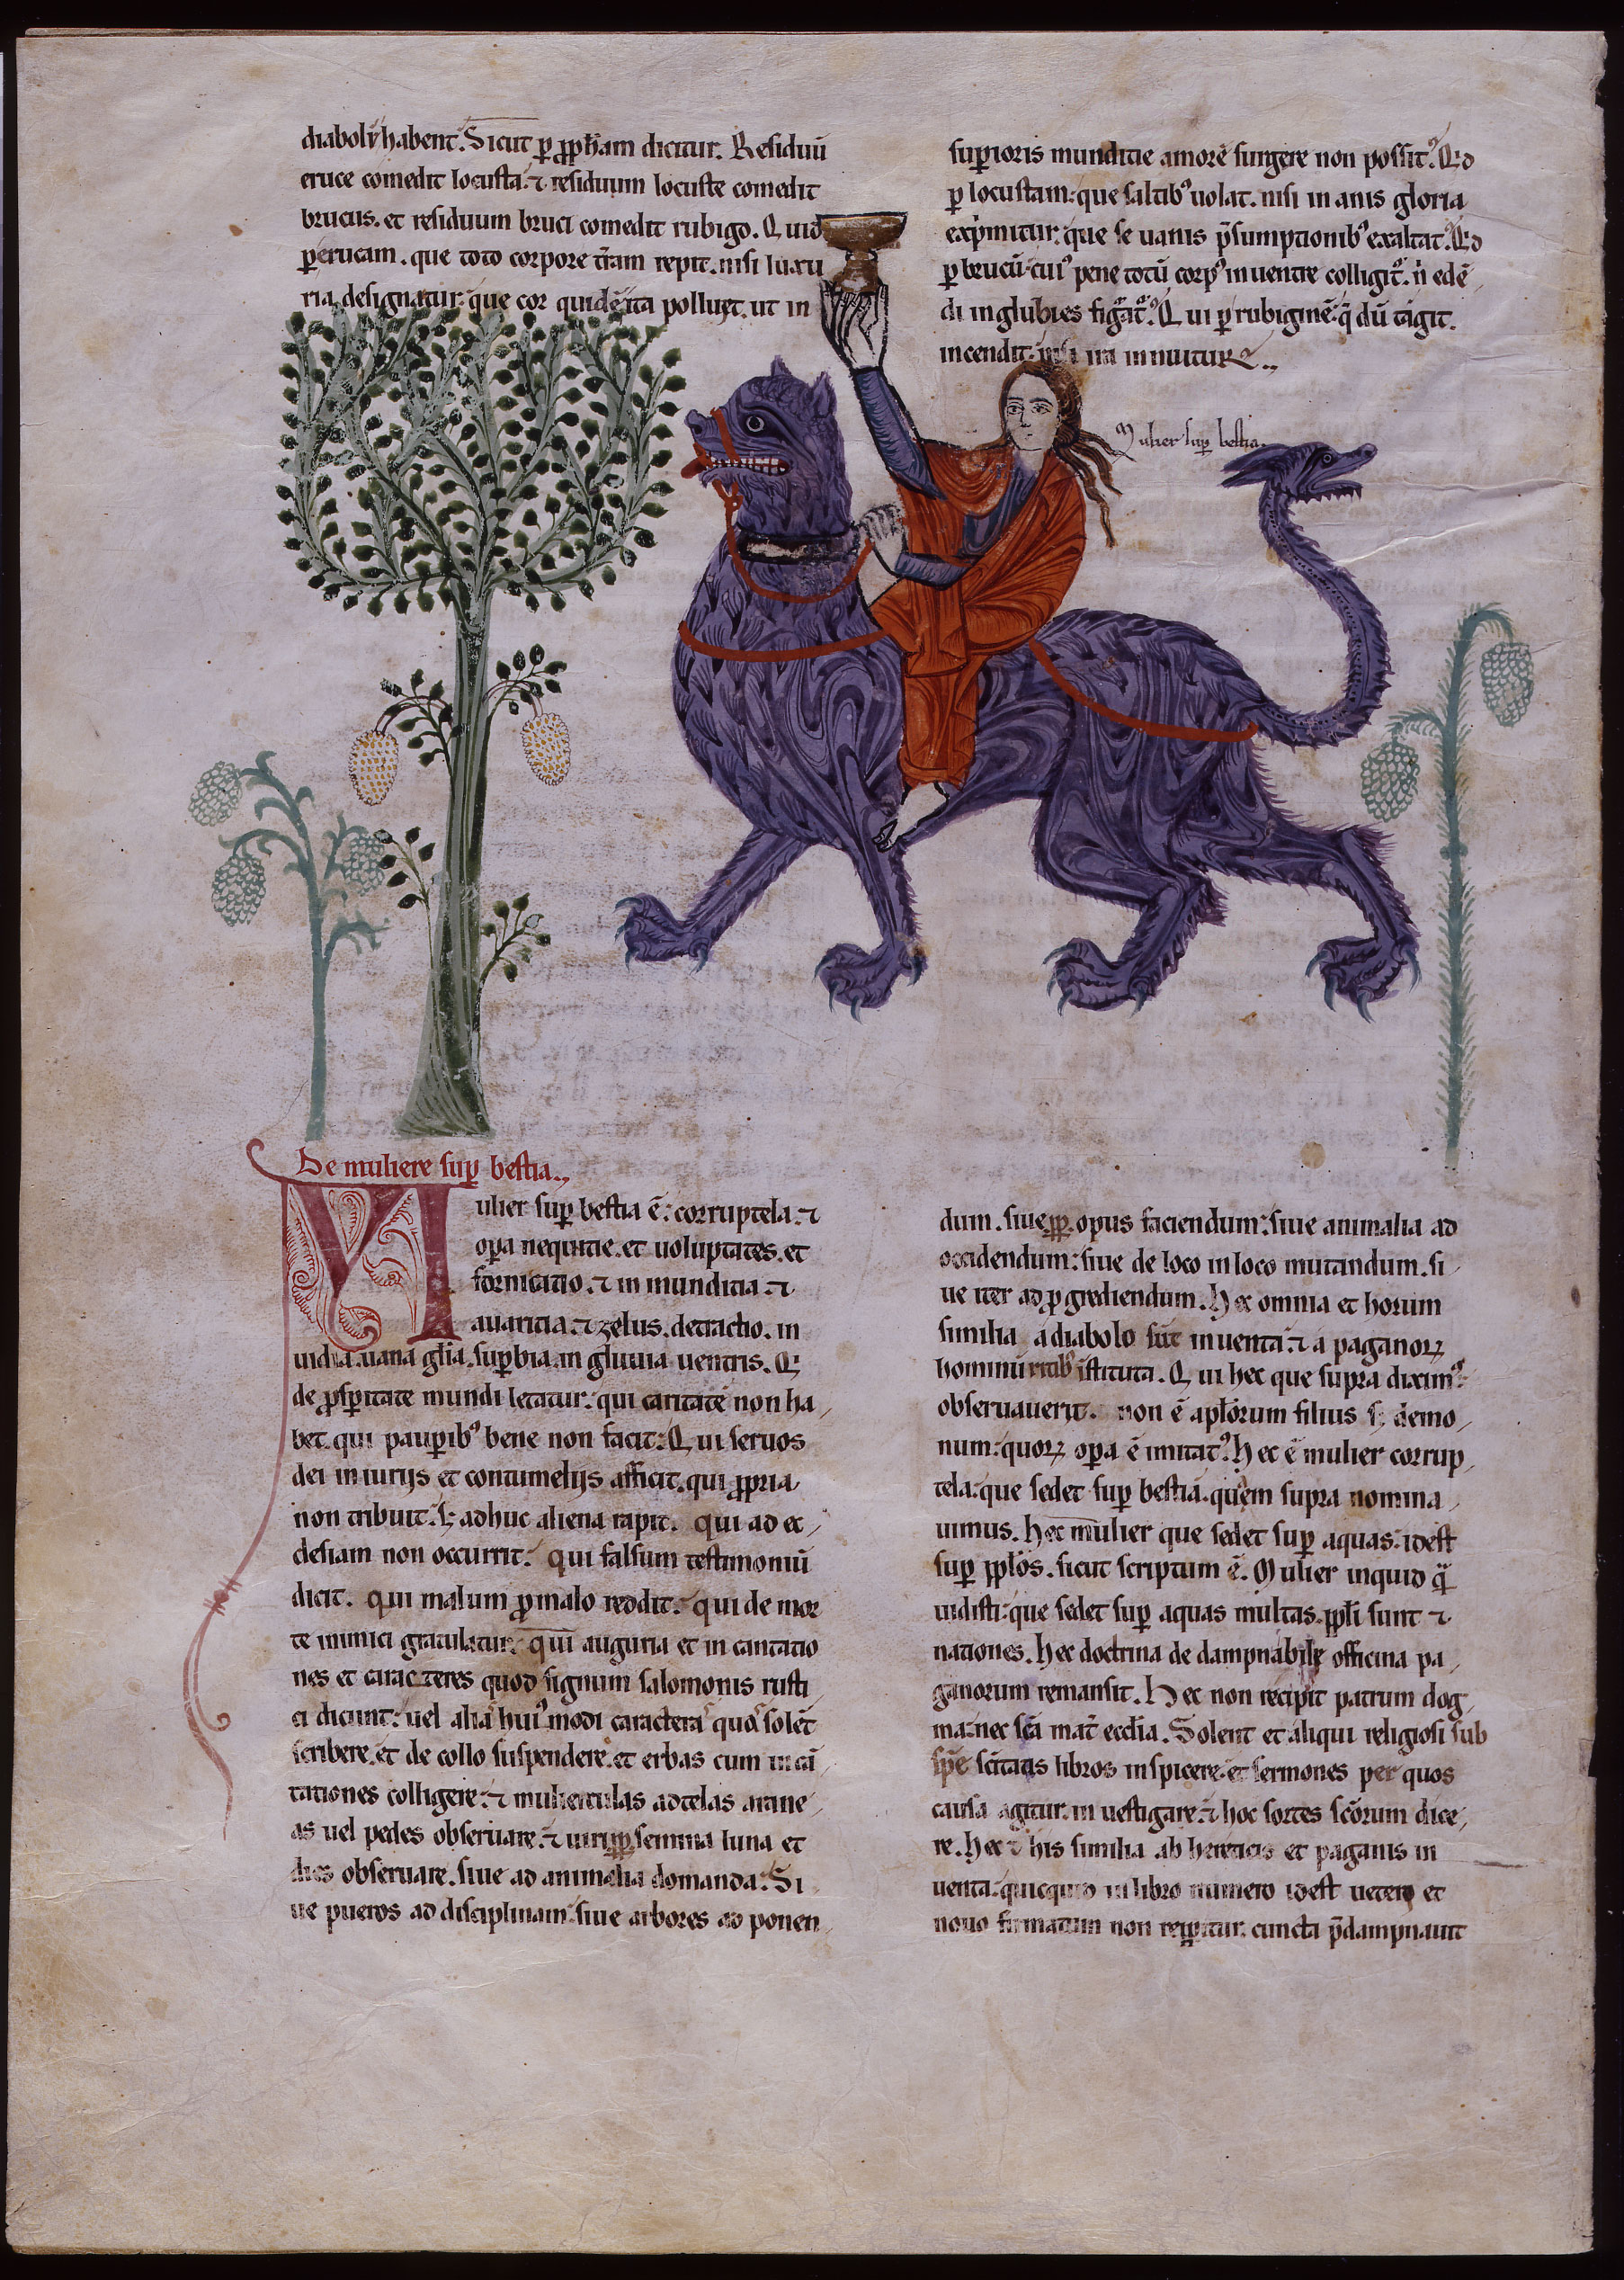 diaboli habent. Sicut ꝑ ꝓph̄am dicitur. Residuū
eruce comedit locusta. ⁊ residuum locuste comedit
brucus. et residuum bruci comedit rubigo. Quid
ꝑ erucam. que toto corpore t̄ram repit. nisi luxu
ria designatur: que cor quidē ita polluet. ut in
suꝑioris munditie amorē surgere non possit. Qd
ꝑ locustam: que saltibꝰ uolat. nisi inanis gloria
exp̍mitur: que se uanis p̄sumptionibꝰ exaltat. Qd
ꝑ brucū cuiꝰ pene totū corpꝰ in uentre colligit᷑. n̍ edē
di ingluuies figᷓat᷑. Qui ꝑ rubiginē: q̄ dū tāgit.
incendit: nisi ira innuitur.
Mulier suꝑ bestia.
De muliere suꝑ bestia.
Mulier suꝑ bestia ē: corruptela. ⁊
oꝑa nequitie. et uoluptates. et
fornicatio. ⁊ in munditia. ⁊
auaritia. ⁊ zelus. detractio. in
uidia. uana gl̄ia. suꝑbia. in gluuia uentris. Q̄
de ꝓsꝑitate mundi letatur: qui caritatē non ha
bet. qui pauꝑibꝰ bene non facit: Qui seruos
dei iniurijs et contumelijs afficit. qui ꝓpria
non tribuit. sꝫ adhuc aliena rapit. qui ad ec
clesiam non occurrit. qui falsum testimoniū
dicit. qui malum ꝓ malo reddit. qui de mor
te inimici gratulatur. qui auguria et in cantatio
nes et caracteres quod signum salomonis rusti
ci dicunt: uel alia huiꝰ modi caractera que solēt
scribere. et de collo suspendere. et erbas cum in cā
tationes colligere. ⁊ mulierculas ad telas arane
as uel pedes obseruare. ⁊ semina luna et
dies obseruare. siue ad animalia domanda: Si
ue pueros ad disciplinam: siue arbores ad ponen
dum. siue opus faciendum: siue animalia ad
occidendum: siue de loco in loco mutandum. si
ue iter ad ꝓgrediendum. Hec omnia et horum
similia a diabolo sūt inuenta ⁊ a paganoꝝ
hominū ritibꝰ īstituta. Qui hec que supra diximꝰ
obseruauerit. non ē apl̄orum filius sꝫ demo
num: quoꝝ oꝑa ē imitatꝰ. Hec ē mulier corrup
tela: que sedet suꝑ bestia. quem supra nomina
uimus. Hec mulier que sedet suꝑ aquas: idest
suꝑ ppl̄os. sicut scriptum ē. Mulier inquid qᷓ
uidisti: que sedet suꝑ aquas multas. ppl̄i sunt ⁊
nationes. Hec doctrina de dampnabile officina pa
ganorum remansit. Hec non recipit patrum dog
ma: nec sc̄a mat̄ eccl̄ia. Solent et aliqui religiosi sub
spē sc̄itatis libros inspicere. et sermones per quos
causa agitur. in uestigare. ⁊ hoc sortes sc̄orum dice
re. Hec ⁊ his similia ab hereticis et paganis in
uenta: quicquid in libro numero idest ueteri et
nouo firmatum non reꝑitur. cuncta p̄dampnauit